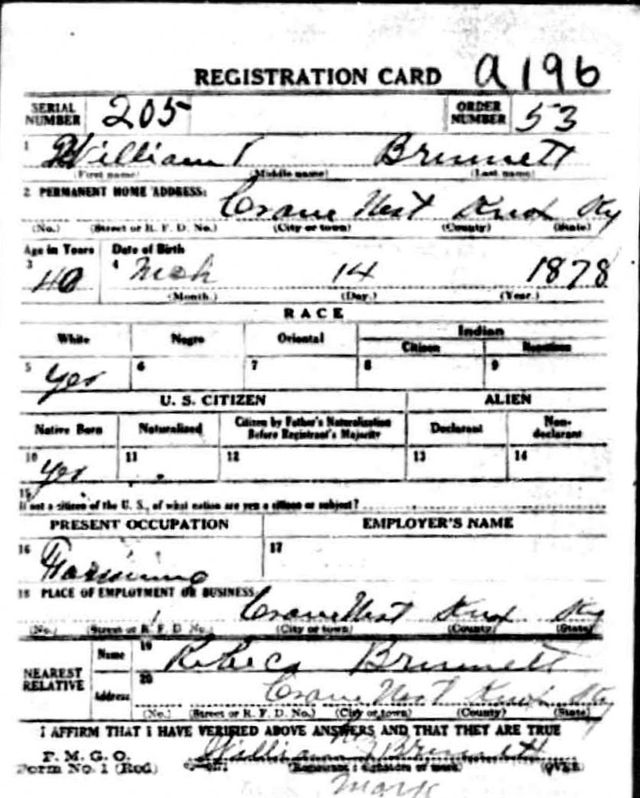 REGISTRATION CARD a196
SERIAL NUMBER 205 ORDER NUMBER 53
1 William T Brunett
(First name) (Middle name) (Last name)
2 PERMANENT HOME ADDRESS: Crane Nest Knox Ky
(No.) (Street or R. F. D. No.) (City or town) (County) (State)
Age in Years Date of Birth
3 40 4 Mch 14 1878
(Month.) (Day.) (Year.)
RACE
White Negro Oriental Indian
Citizen
5 Yes 6 7 8 9
U. S. CITIZEN ALIEN
Native Born Naturalized Citizen by Father's Naturalization Before Registrant's Majority Declarant Non-declarant
10 Yes 11 12 13 14
15
If not a citizen of the U. S., of what nation are you a citizen or subject?
PRESENT OCCUPATION EMPLOYER'S NAME
16 Farming 17
18 PLACE OF EMPLOYMENT OR BUSINESS
Crane Nest Knox Ky
(No.) (Street or R. F. D. No.) (City or town) (County) (State)
NEAREST RELATIVE Name 19 Rebeca Brunett
Address 20 Crane Nest Knox Ky
(No.) (Street or R. F. D. No.) (City or town) (County) (State)
I AFFIRM THAT I HAVE VERIFIED ABOVE ANSWERS AND THAT THEY ARE TRUE
P. M. G. O.
Form No. 1 (Red) William Brunett
(Registrant's signature or mark) (OVER)
Mark